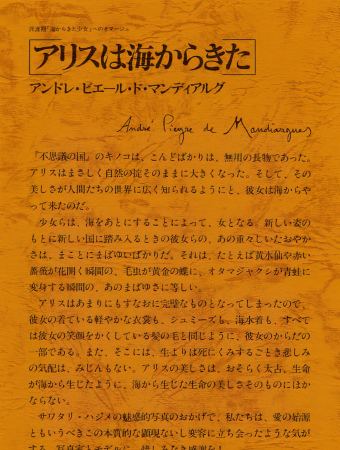 沢渡朔「海からきた少女」へのオマージュ
アリスは海からきた
アンドレ・ピエール・ド・マンディアルグ
André Pieyre de Mandiargues
『不思議の国』のキノコは、こんどばかりは、無用の長物であった。
アリスはまさしく自然の掟そのままに大きくなった。そして、その
美しさが人間たちの世界に広く知られるようにと、彼女は海からや
って来たのだ。
少女らは、海をあとにすることによって、女となる。新しい姿の
もとに新しい国に踏み入るときの彼女らの、あの重々しいたおやか
さは、まことにまばゆいばかりだ。それは、たとえば黄水仙や赤い
薔薇が花開く瞬間の、毛虫が黄金の蝶に、オタマジャクシが青蛙に
変身する瞬間の、あのまばゆさに等しい。
アリスはあまりにもすなおに完璧なものとなってしまったので、
彼女の着ている軽やかな衣裳も、シュミーズも、海水着も、すべて
は彼女の笑顔をかくしている髪の毛と同じように、彼女のからだの
一部である。また、そこには、生よりは死にくみするごとき悲しみ
の気配は、みじんもない。アリスの美しさは、おそらく太古、生命
が海から生じたように、海から生じた生命の美しさそのものにほか
ならない。
サワタリ・ハジメの魅惑的写真のおかげで、私たちは、愛の始源
ともいうべきこの本質的な顕現ないし変容に立ち会ったような気が
する。写真家とモデルに、惜しみなき感謝を！